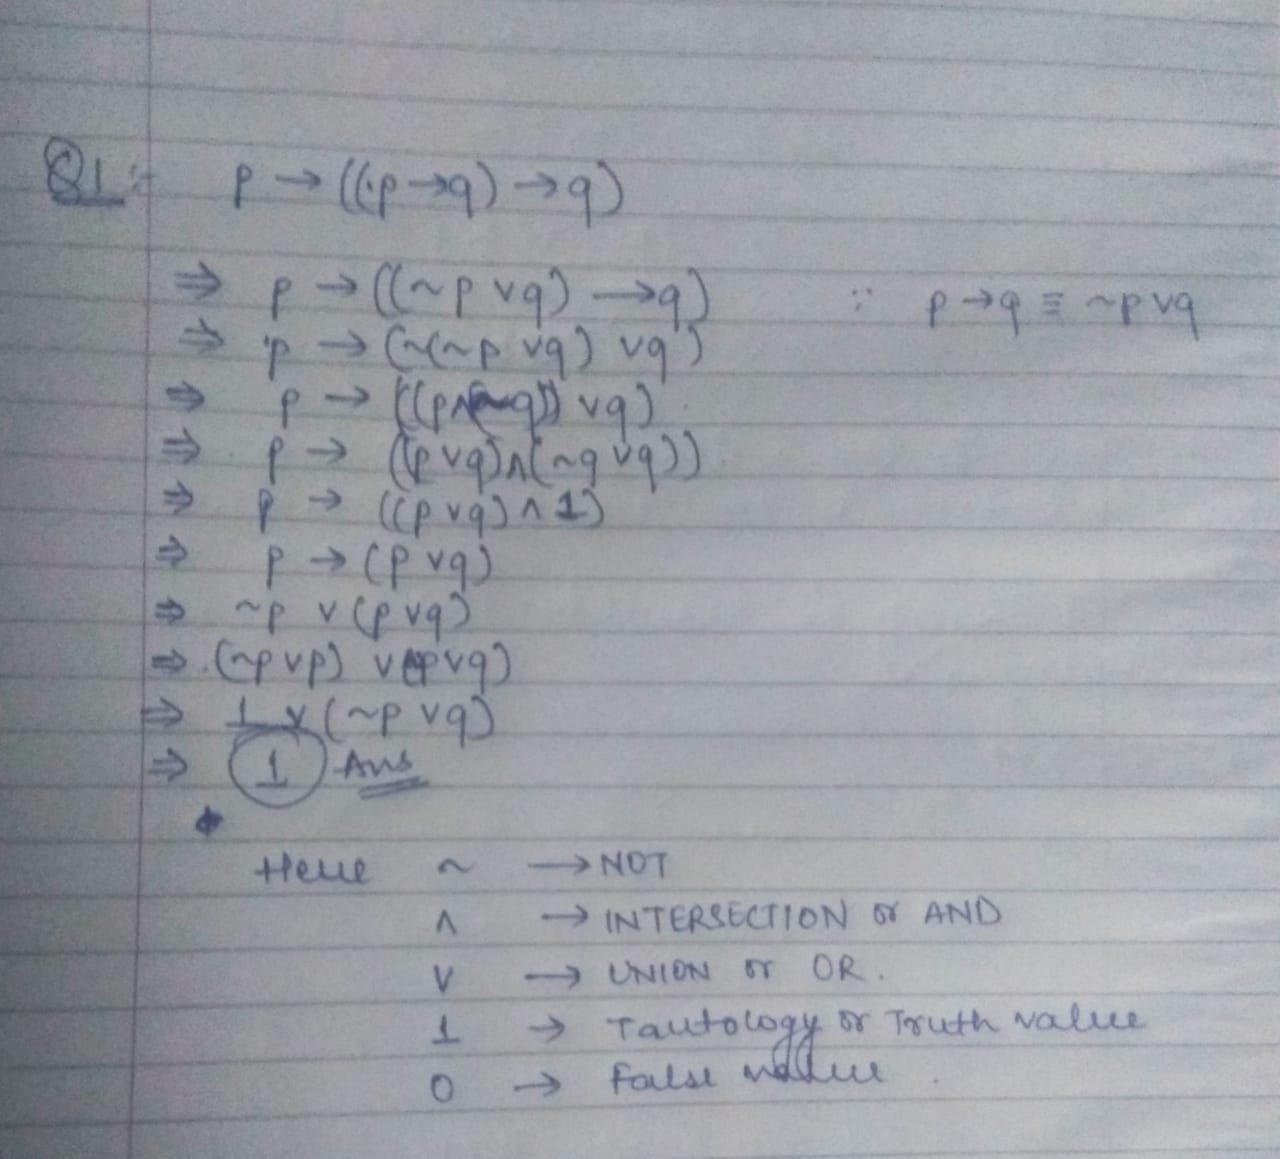 Q1:- p → ((p → q) → q)
⇒ p → ((~p ∨ q) → q) ∵ p → q ≡ ~p ∨ q
⇒ p → (~(~p ∨ q) ∨ q)
⇒ p → ((p ∧ ~q)) ∨ q)
⇒ p → ((p ∨ q) ∧ (~q ∨ q))
⇒ p → ((p ∨ q) ∧ 1)
⇒ p → (p ∨ q)
⇒ ~p ∨ (p ∨ q)
⇒ (~p ∨ p) ∨ (~p ∨ q)
⇒ 1 ∨ (~p ∨ q)
⇒ 1 Ans
Here ~ → NOT
∧ → INTERSECTION or AND
∨ → UNION or OR.
1 → Tautology or Truth value
0 → False value.